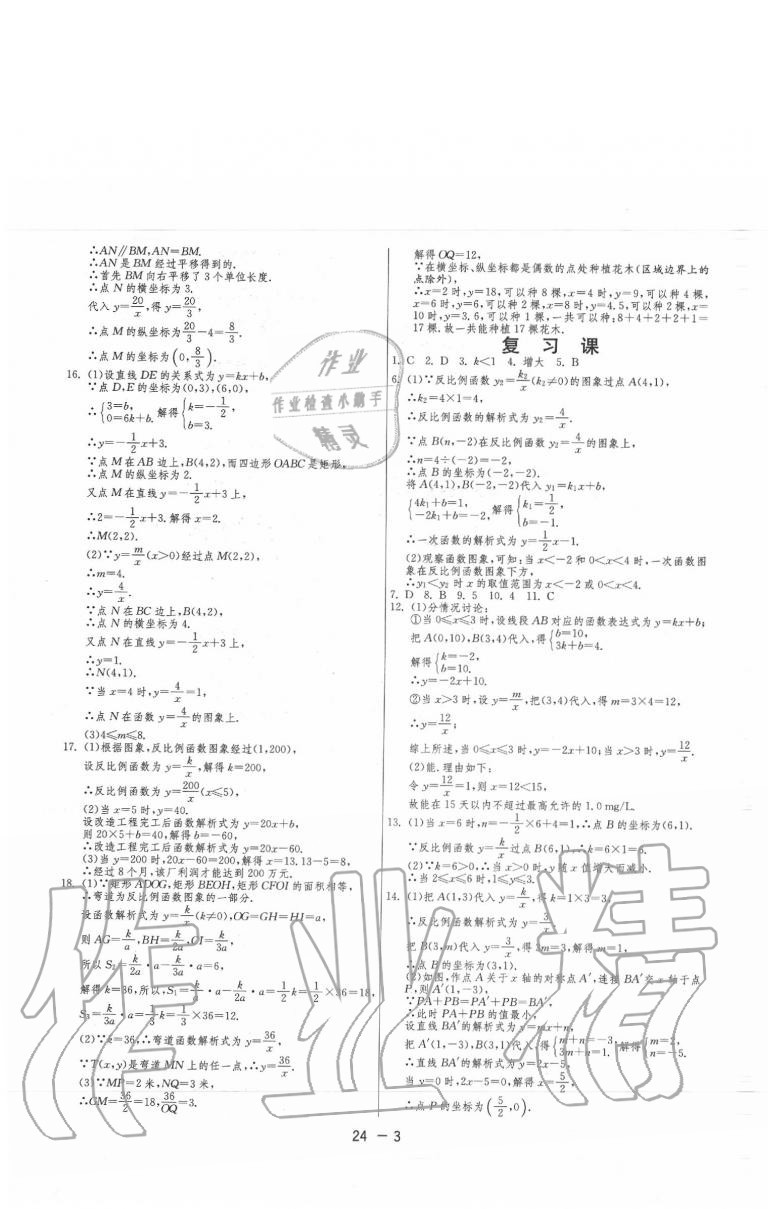 ∴AN∥BM,AN=BM.
∴AN是BM经过平移得到的.
∴首先BM向右平移了3个单位长度.
∴点N的横坐标为3.
代入y=20/x,得y=20/3,
∴点M的纵坐标为20/3-4=8/3.
∴点M的坐标为(0,8/3).
16. (1)设直线DE的关系式为y=kx+b,
∵点D,E的坐标为(0,3),(6,0),
∴{3=b, 0=6k+b. 解得{k=-1/2, b=3.
∴y=-1/2x+3.
∵点M在AB边上,B(4,2),而四边形OABC是矩形,
∴点M的纵坐标为2.
又点M在直线y=-1/2x+3上,
∴2=-1/2x+3.解得x=2.
∴M(2,2).
(2)∵y=m/x(x>0)经过点M(2,2),
∴m=4.
∴y=4/x.
∵点N在BC边上,B(4,2),
∴点N的横坐标为4.
又点N在直线y=-1/2x+3上,
∴y=1.
∴N(4,1).
∵当x=4时,y=4/x=1,
∴点N在函数y=4/x的图象上.
(3)4≤m≤8.
17. (1)根据图象,反比例函数图象经过(1,200),
设反比例函数为y=k/x,解得k=200,
∴反比例函数为y=200/x(x≤5),
(2)当x=5时,y=40.
设改造工程完工后函数解析式为y=20x+b,
则20×5+b=40,解得b=-60,
∴改造工程完工后函数解析式为y=20x-60.
(3)当y=200时,20x-60=200,解得x=13.13-5=8,
∴经过8个月,该厂利润才能达到200万元.
18. (1)∵矩形ADOG,矩形BEOH,矩形CFOI的面积相等,
∴弯道为反比例函数图象的一部分.
设函数解析式为y=k/x(k≠0),OG=GH=HI=a,
则AG=k/a,BH=k/2a,CI=k/3a,
所以S₂=k/2a·a-k/3a·a=6,
解得k=36,所以,S₁=k/a·a-k/2a·a=1/2k=1/2×36=18,
S₃=k/3a·a=1/3k=1/3×36=12.
(2)∵k=36,∴弯道函数解析式为y=36/x,
∵T(x,y)是弯道MN上的任一点,∴y=36/x.
(3)∵MP=2米,NQ=3米,
∴GM=36/2=18,36/OQ=3.
解得OQ=12,
∵在横坐标、纵坐标都是偶数的点处种植花木(区域边界上的
点除外),
∴x=2时,y=18,可以种8棵,x=4时,y=9,可以种4棵,
x=6时,y=6,可以种2棵,x=8时,y=4.5,可以种2棵,x=
10时,y=3.6,可以种1棵,一共可以种:8+4+2+2+1=
17棵.故一共能种植17棵花木.
复习课
1. C 2. D 3. k<1 4. 增大 5. B
6. (1)∵反比例函数y₂=k₂/x(k₂≠0)的图象过点A(4,1),
∴k₂=4×1=4,
∴反比例函数的解析式为y₂=4/x.
∵点B(n,-2)在反比例函数y₂=4/x的图象上,
∴n=4÷(-2)=-2,
∴点B的坐标为(-2,-2).
将A(4,1),B(-2,-2)代入y₁=k₁x+b,
{4k₁+b=1, -2k₁+b=-2, 解得{k₁=1/2, b=-1.
∴一次函数的解析式为y=1/2x-1.
(2)观察函数图象,可知:当x<-2和0<x<4时,一次函数图
象在反比例函数图象下方,
∴y₁<y₂时x的取值范围为x<-2或0<x<4.
7. D 8. B 9. 5 10. 4 11. C
12. (1)分情况讨论:
①当0≤x≤3时,设线段AB对应的函数表达式为y=kx+b;
把A(0,10),B(3,4)代入,得{b=10, 3k+b=4.
解得{k=-2, b=10.
∴y=-2x+10.
②当x>3时,设y=m/x,把(3,4)代入,得m=3×4=12,
∴y=12/x;
综上所述,当0≤x≤3时,y=-2x+10;当x>3时,y=12/x.
(2)能.理由如下:
令y=12/x=1,则x=12<15,
故能在15天以内不超过最高允许的1.0mg/L.
13. (1)当x=6时,n=-1/2×6+4=1,∴点B的坐标为(6,1).
∵反比例函数y=k/x过点B(6,1),∴k=6×1=6.
(2)∵k=6>0,∴当x>0时,y随x值增大而减小.
∴当2≤x≤6时,1≤y≤3.
14. (1)把A(1,3)代入y=k/x,得k=1×3=3,
∴反比例函数解析式为y=3/x.
把B(3,m)代入y=3/x,得3m=3,解得m=1,
∴点B的坐标为(3,1).
(2)如图,作点A关于x轴的对称点A′,连接BA′交x轴于点
P,则A′(1,-3),
∵PA+PB=PA′+PB=BA′,
∴此时PA+PB的值最小,
设直线BA′的解析式为y=mx+n,
把A′(1,-3),B(3,1)代入,得{m+n=-3, 3m+n=1. 解得{m=2, n=-5.
∴直线BA′的解析式为y=2x-5,
当y=0时,2x-5=0,解得x=5/2,
∴点P的坐标为(5/2,0).
24 - 3
作业
作业检查小助手
精灵
作业精